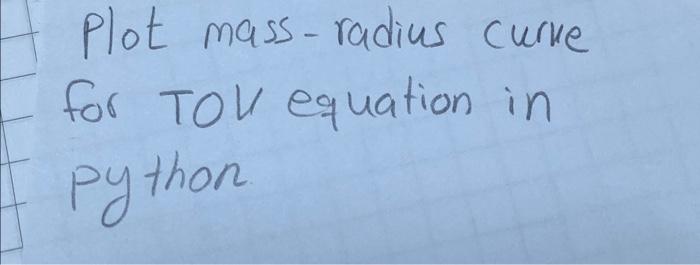 Plot mass-radius curve
for TOV equation in
python